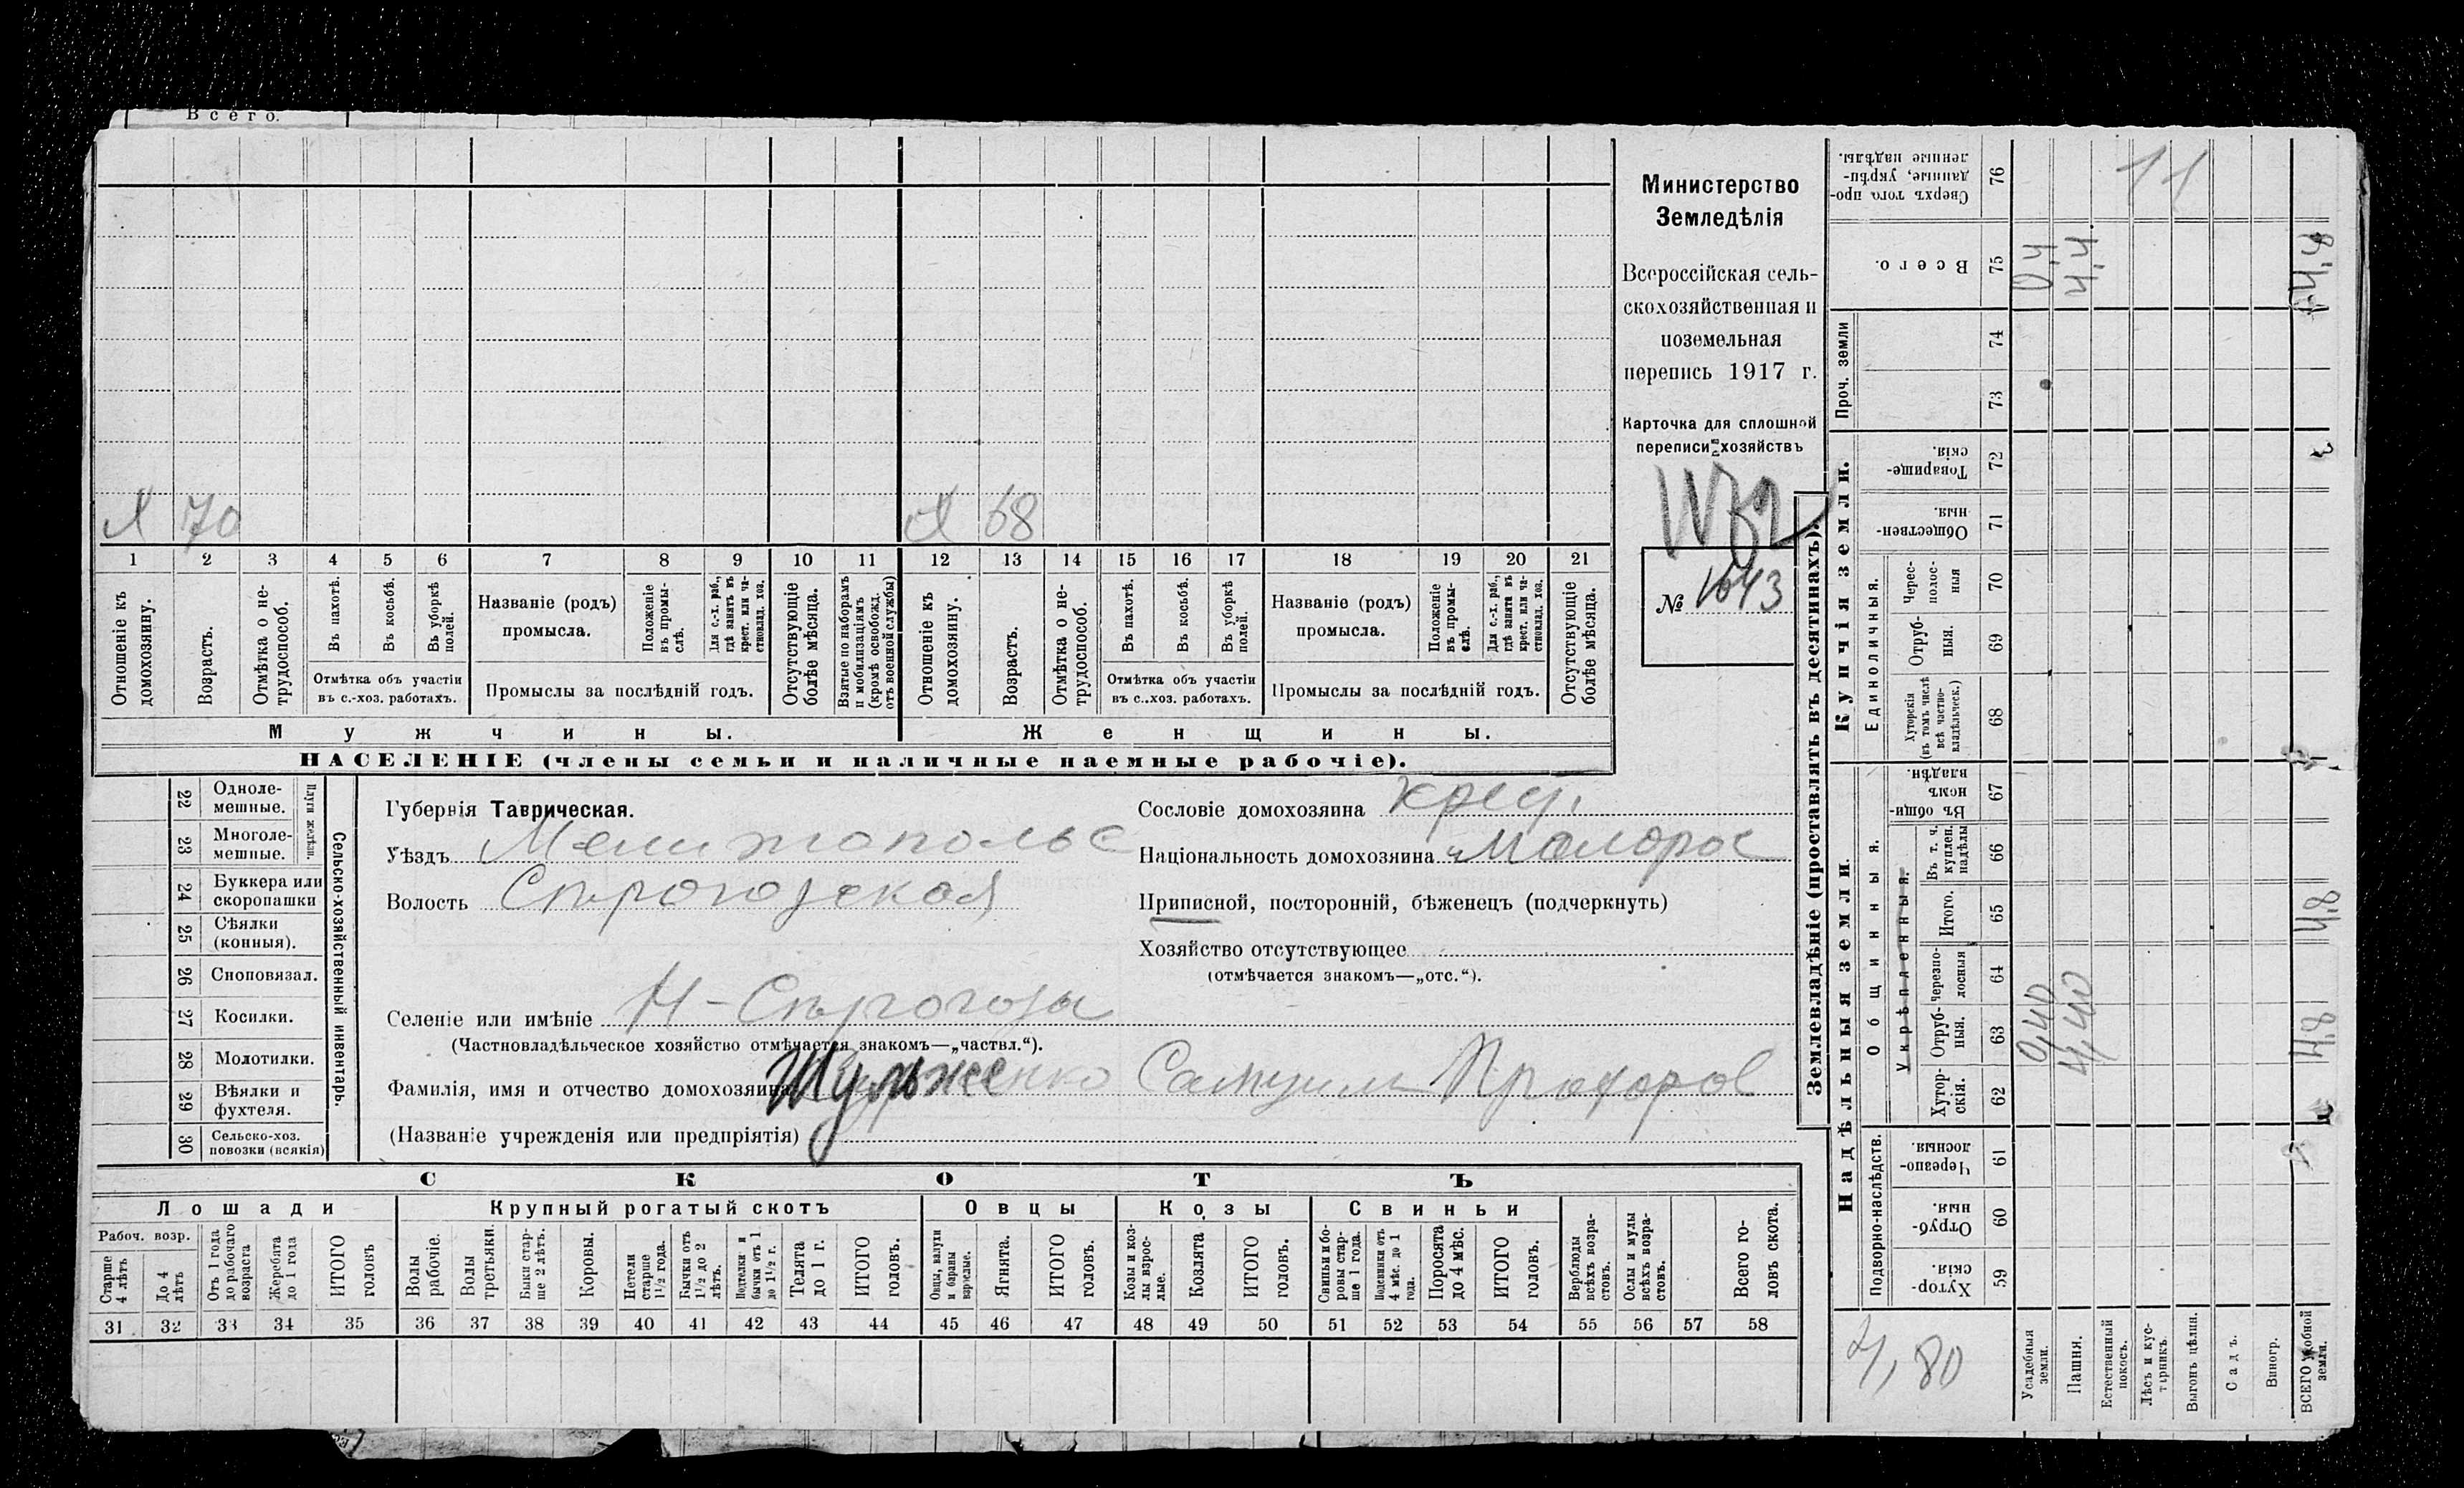 Всего.
Министерство
Земледѣлія
Всероссійская сель-
скохозяйственная и
поземельная
перепись 1917 г.
Карточка для сплошной
переписи хозяйствъ
№ 1643
Я 70 Я 68
1 2 3 4 5 6 7 8 9 10 11 12 13 14 15 16 17 18 19 20 21
Отношеніе къ домохозяину.
Возрастъ.
Отмѣтка о не-трудоспособ.
Въ пахотѣ.
Въ косьбѣ.
Въ уборкѣ полей.
Отмѣтка объ участіи
въ с.-хоз. работахъ.
Названіе (родъ)
промысла.
Положеніе въ промы-слѣ.
Для с.-х. раб., гдѣ занятъ въ крест. или ча-стновлад. хоз.
Промыслы за послѣдній годъ.
Отсутствующіе болѣе мѣсяца.
Взятые по наборамъ и мобилизаціямъ (кромѣ освобожд. отъ военной службы)
Отношеніе къ домохозяину.
Возрастъ.
Отмѣтка о не-трудоспособ.
Въ пахотѣ.
Въ косьбѣ.
Въ уборкѣ полей.
Отмѣтка объ участіи
въ с..хоз. работахъ.
Названіе (родъ)
промысла.
Положеніе въ промы-слѣ.
Для с.-х. раб., гдѣ занята въ крест. или ча-стновлад. хоз.
Промыслы за послѣдній годъ.
Отсутствующіе болѣе мѣсяца.
Мужчины.
Женщины.
НАСЕЛЕНІЕ (члены семьи и наличные наемные рабочіе).
22 Одноле-мешные.
23 Многоле-мешные.
Плуги желѣзн.
24 Буккера или скоропашки
25 Сѣялки (конныя).
26 Сноповязал.
27 Косилки.
28 Молотилки.
29 Вѣялки и фухтеля.
30 Сельско-хоз. повозки (всякія)
Сельско-хозяйственный инвентарь.
Губернія Таврическая.
Уѣздъ Мелитопольс
Волость Сѣрогозская
Селеніе или имѣніе Н-Сѣрогозы
(Частновладѣльческое хозяйство отмѣчается знакомъ—„частвл.“).
Фамилія, имя и отчество домохозяина Шульженко Самуил Прохоров
(Названіе учрежденія или предпріятія)
Сословіе домохозяина крест.
Національность домохозяина Малорос
Приписной, посторонній, бѣженецъ (подчеркнуть)
Хозяйство отсутствующее
(отмѣчается знакомъ—„отс.“).
СКОТЪ
Лошади
Крупный рогатый скотъ
Овцы
Козы
Свиньи
Рабоч. возр.
Старше 4 лѣтъ
До 4 лѣтъ
Отъ 1 года до рабочаго возраста
Жеребята до 1 года
ИТОГО головъ
Волы рабочіе.
Волы третьяки.
Быки стар-ше 2 лѣтъ.
Коровы.
Нетели старше 1½ года.
Бычки отъ 1½ до 2 лѣтъ.
Подтелки и бычки отъ 1 до 1½ г.
Телята до 1 г.
ИТОГО головъ.
Овцы, валухи и бараны взрослые.
Ягнята.
ИТОГО головъ.
Козы и коз-лы взрос-лые.
Козлята
ИТОГО головъ.
Свиньи и бо-ровы стар-ше 1 года.
Подсвинки отъ 4 мѣс. до 1 года.
Поросята до 4 мѣс.
ИТОГО головъ.
Верблюды всѣхъ возра-стовъ.
Ослы и мулы всѣхъ возра-стовъ.
Всего го-ловъ скота.
31 32 33 34 35 36 37 38 39 40 41 42 43 44 45 46 47 48 49 50 51 52 53 54 55 56 57 58
Землевладѣніе (проставлять въ десятинахъ).
Купчія земли.
Надѣльныя земли.
Сверхъ того про-данные, укрѣп-ленные надѣлы. 76 11
Всего. 75 0,4 4,4 4,8
Проч. земли 74
73
Товарище-скія. 72
Обществен-ныя. 71
Единоличныя.
Черес-полос-ныя 70
Отруб-ныя. 69
Хуторскія (въ томъ числѣ всѣ частно-владѣльческ.) 68
Общинныя.
Въ общи-номъ владѣн. 67
Укрѣпленныя.
Въ т. ч. куплен. надѣлы 66
Итого. 65 4,8
черезпо-лосныя 64
Отруб-ныя. 63 0,40 4,40 4,8
Хутор-скія. 62
Подворно-наслѣдств.
Черезпо-лосныя 61
Отруб-ныя. 60
Хутор-скія. 59
4,80
Усадебныя земли.
Пашня.
Естественный покосъ.
Лѣсъ и кус-тарникъ.
Выгонъ цѣлин.
Садъ.
Виногр.
ВСЕГО удобной земли.